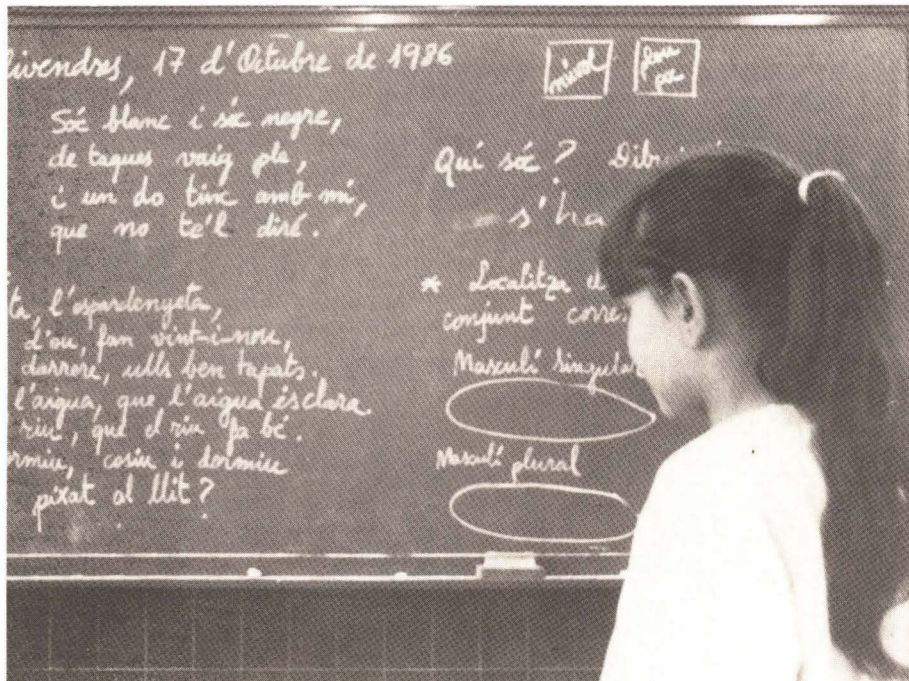 ivendres, 17 d'Octubre de 1986
Sóc blanc i sóc negre,
de taques vaig ple,
i un do tinc amb mi,
que no te'l diré.
ta, l'espardenyeta,
d'ou, fan vint-i-nou,
darrere, ulls ben tapats.
l'aigua, que l'aigua és clara
riu, que el riu fa bé.
ormiu, cosiu i dormiu
pixat al llit?
Qui sóc? Dib
s'ha
* Localitza el
conjunt corre
Masculí singular
Masculí plural